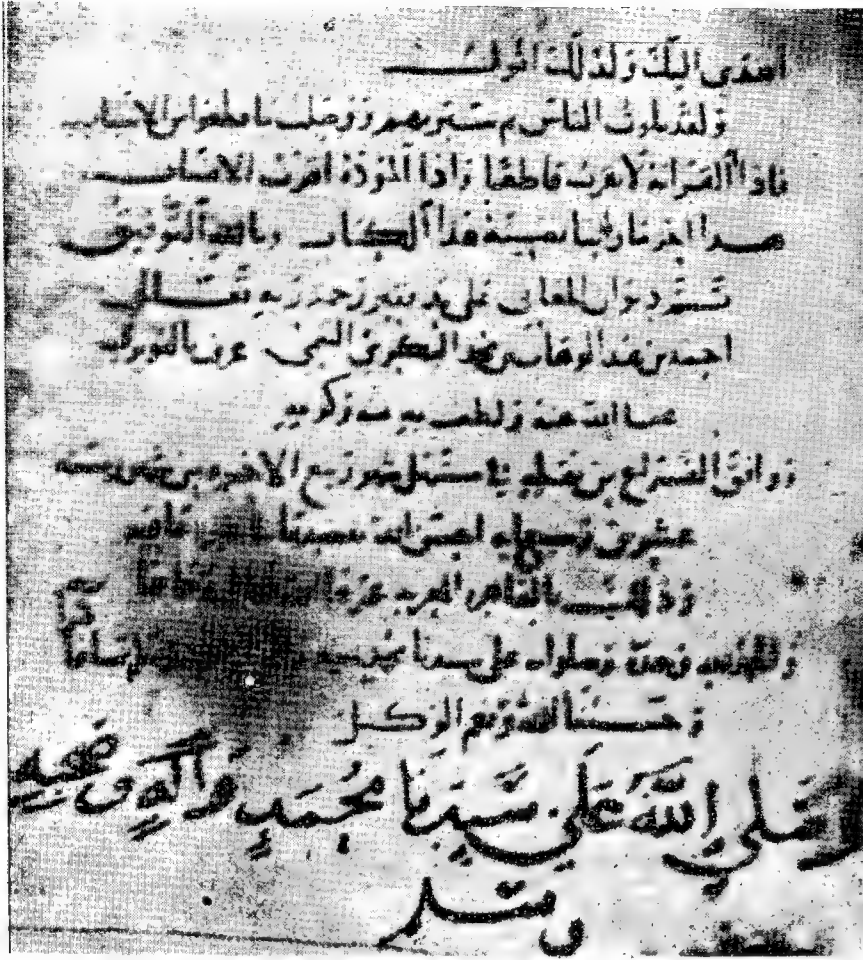 اليك ولذلك اقول
ولقد بلوت الناس ثم سبرتهم ووصلت ما قطعوا من الاسباب
فاذا القرابة لا تقرب قاطعا واذا المودة اقرب الانساب
هذا اخر ما راينا تضمينه هذا الكتاب وبالله التوفيق
تم ديوان المعاني على يد فقير رحمة ربه تعالى
احمد بن عبد الوهاب بن محمد البكري التيمي عرف بالنويري
عفا الله عنه ولطف به بمنه وكرمه
ووافق الفراغ من تعليقه في مستهل شهر ربيع الاخر من شهور سنة
عشرين وسبعمايه احسن الله تقضيها عافيه
وذلك بالقاهره المعزيه
والحمد لله وحده وصلواته على سيدنا محمد نبيه تسليما كثيرا
وحسبنا الله ونعم الوكيل
وصَلى اللهُ عَلَى سَيِّدِنَا مُحُمَدٍ وَالِهِ وصَحبِهِ
وسلم